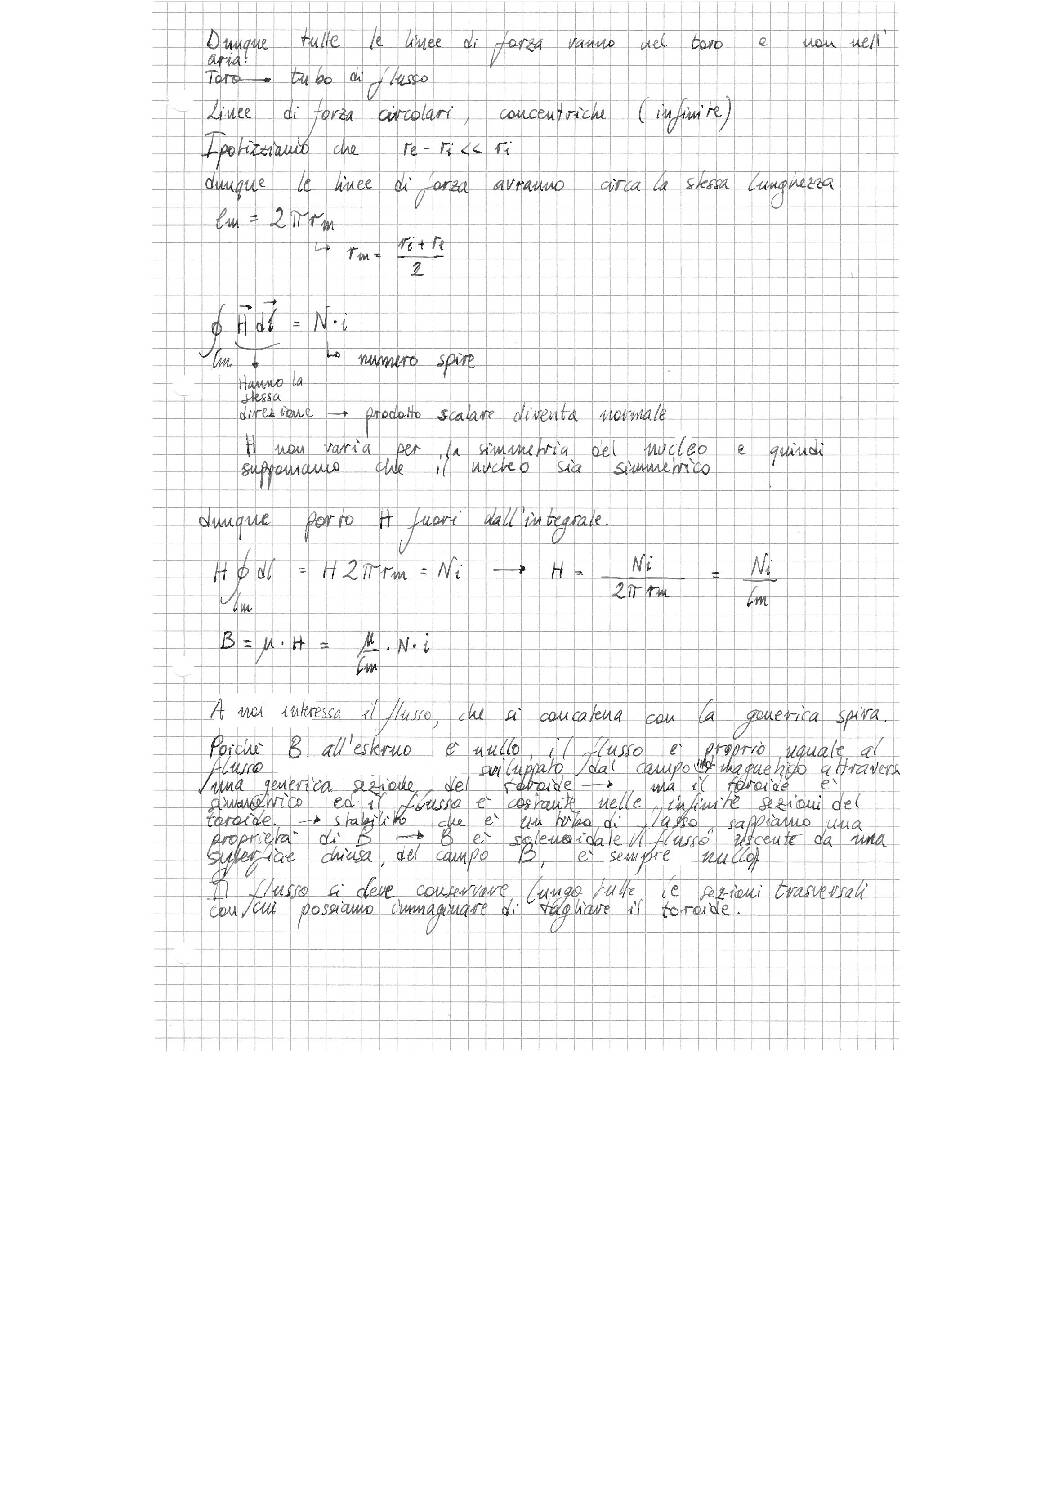 Dunque tutte le linee di forza vanno nel toro e non nell'
aria!
Toro → tubo di flusso
Linee di forza circolari, concentriche (infinite)
Ipotizziamo che re - ri << ri
dunque le linee di forza avranno circa la stessa lunghezza
lm = 2πrm
↳ rm = (ri + re)/2
∮lm H⃗ dl⃗ = N·i
↳ numero spire
Hanno la
stessa
direzione → prodotto scalare diventa normale
H non varia per la simmetria del nucleo e quindi
supponiamo che il nucleo sia simmetrico
dunque porto H fuori dall'integrale.
H ∮lm dl = H 2πrm = Ni → H = Ni/(2πrm) = Ni/lm
B = μ·H = μ/lm · N·i
A noi interessa il flusso, che si concatena con la generica spira.
Poiché B all'esterno è nullo, il flusso è proprio uguale al
flusso sviluppato dal campo magnetico attravers
una generica sezione del toroide → ma il toroide è
simmetrico ed il flusso è costante nelle infinite sezioni del
toroide. → stabilito che è un tubo di flusso sappiamo una
proprietà di B → B è solenoidale (il flusso uscente da una
superficie chiusa, del campo B, è sempre nullo)
Il flusso si deve conservare lungo tutte le sezioni trasversali
con cui possiamo immaginare di tagliare il toroide.